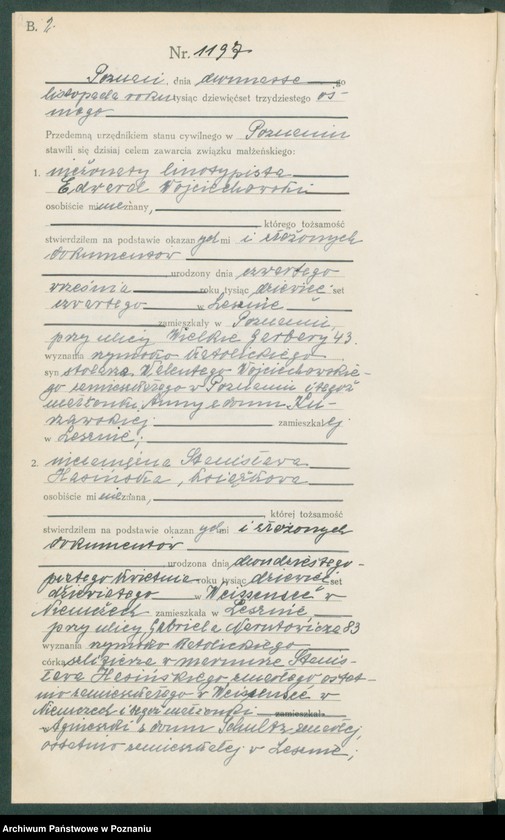 B. 2.
Nr. 1197
Poznań, dnia dwunastego
listopada roku tysiąc dziewięćset trzydziestego ós-
mego
Przedemną urzędnikiem stanu cywilnego w Poznaniu
stawili się dzisiaj celem zawarcia związku małżeńskiego:
1. nieżonaty linotypista
Edward Wojciechowski
osobiście mi nieznany,
którego tożsamość
stwierdziłem na podstawie okazanych mi i złożonych
dokumentów
urodzony dnia czwartego
września roku tysiąc dziewięćset
czwartego w Lesznie
zamieszkały w Poznaniu,
przy ulicy Wielkie Garbary 43.
wyznania rzymsko katolickiego
syn stolarza Walentego Wojciechowskie-
go zamieszkałego w Poznaniu i tegoż
małżonki Anny z domu
zamieszkałej
w Lesznie;
2. niezamężna Stanisława
Hasińska,
osobiście mi nieznana,
której tożsamość
stwierdziłem na podstawie okazanych mi i złożonych
dokumentów
urodzona dnia dwudziestego
piątego kwietnia roku tysiąc dziewięćset
dziewiątego w Weissensee w
Niemczech zamieszkała w Lesznie,
przy ulicy Gabriela Narutowicza 83
wyznania rzymsko katolickiego
córka szlifierza w marmurze Stanis-
ława Hasińskiego, zmarłego ostat-
nio zamieszkałego w Weissensee w
Niemczech i tegoż małżonki zamieszkałe
Agnieszki z domu Schultz zmarłej,
ostatnio zamieszkałej w Lesznie;
Archiwum Państwowe w Poznaniu